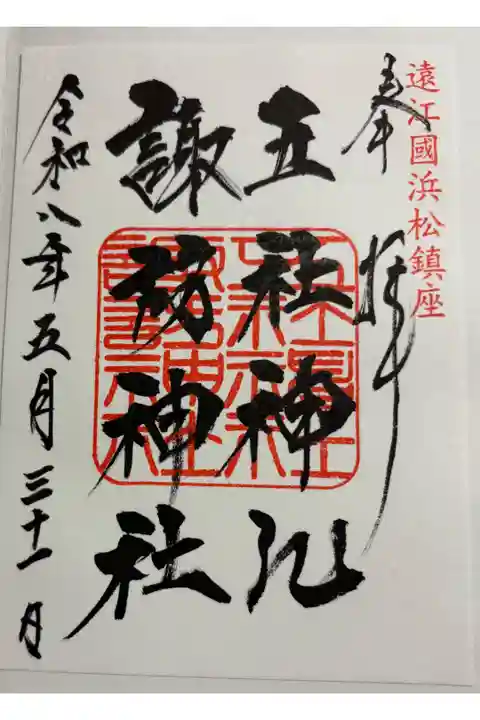 遠江國浜松鎮座
奉拝
五社神社
諏訪神社
令和八年五月三十一日